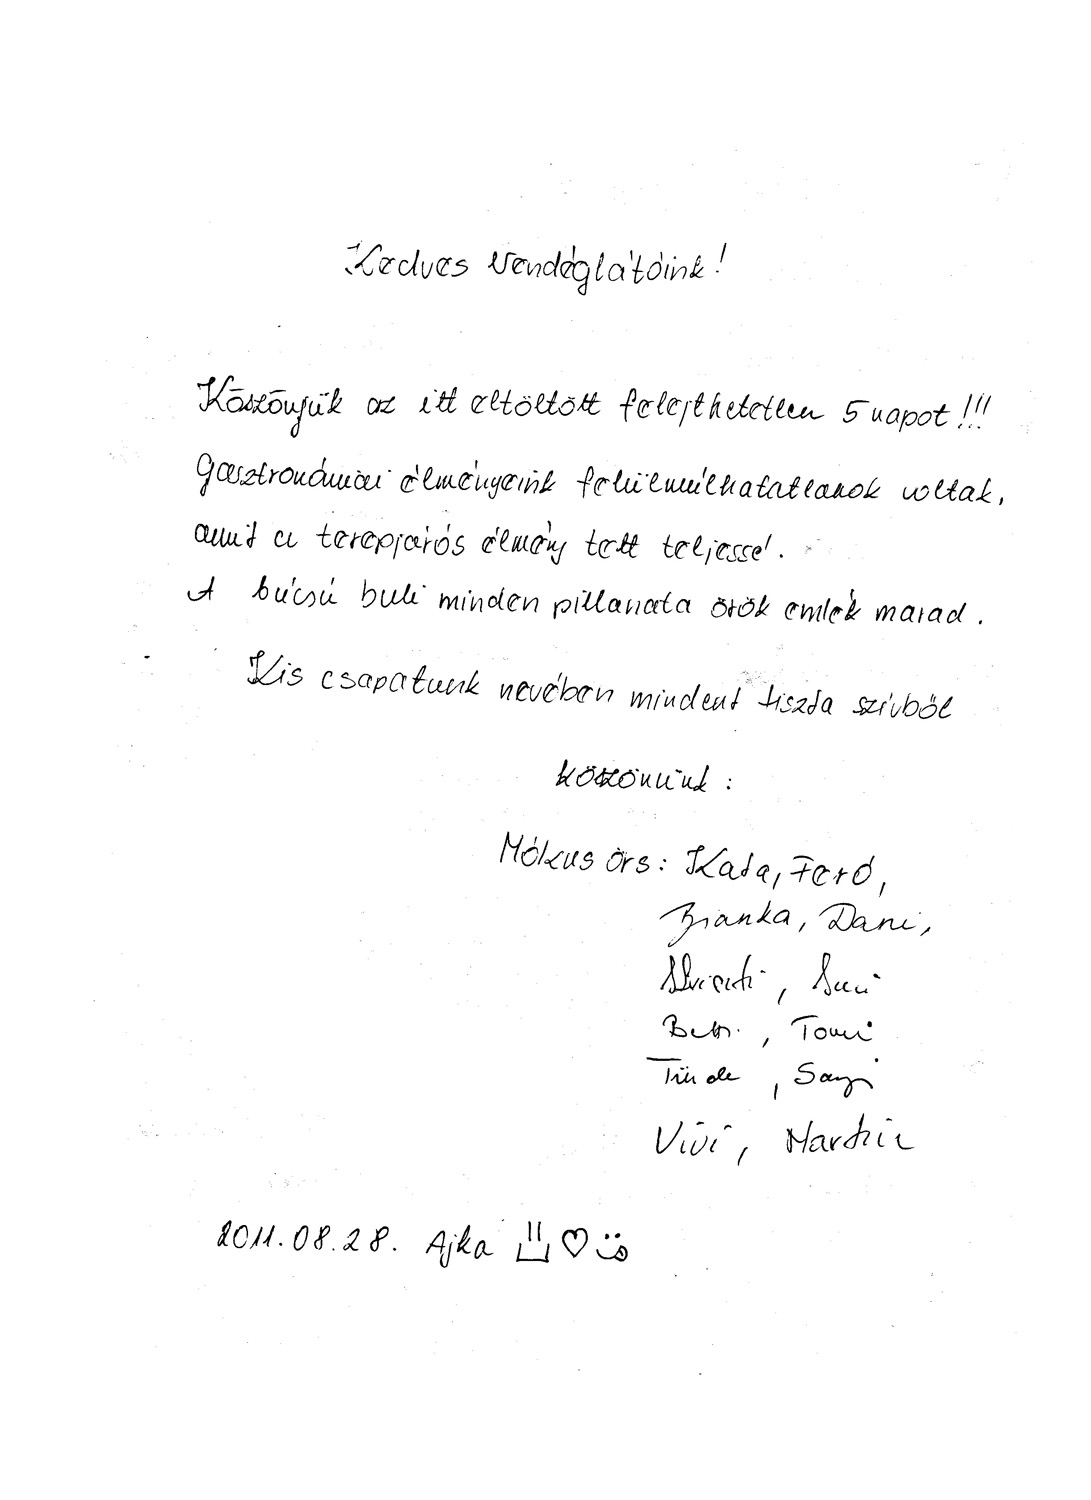 Kedves Vendéglátóink!
Köszönjük az itt eltöltött felejthetetlen 5 napot!!!
Gasztronómiai élményeink felülmúlhatatlanok voltak,
amit a terepjárós élmény tett teljessé.
A búcsú buli minden pillanata örök emlék marad.
Kis csapatunk nevében mindent tiszta szívből
köszönünk:
Mókus őrs: Kata, Feró,
Bianka, Dani,
Betti, Tomi
Tünde,
Vivi, Martin
2011.08.28. Ajka